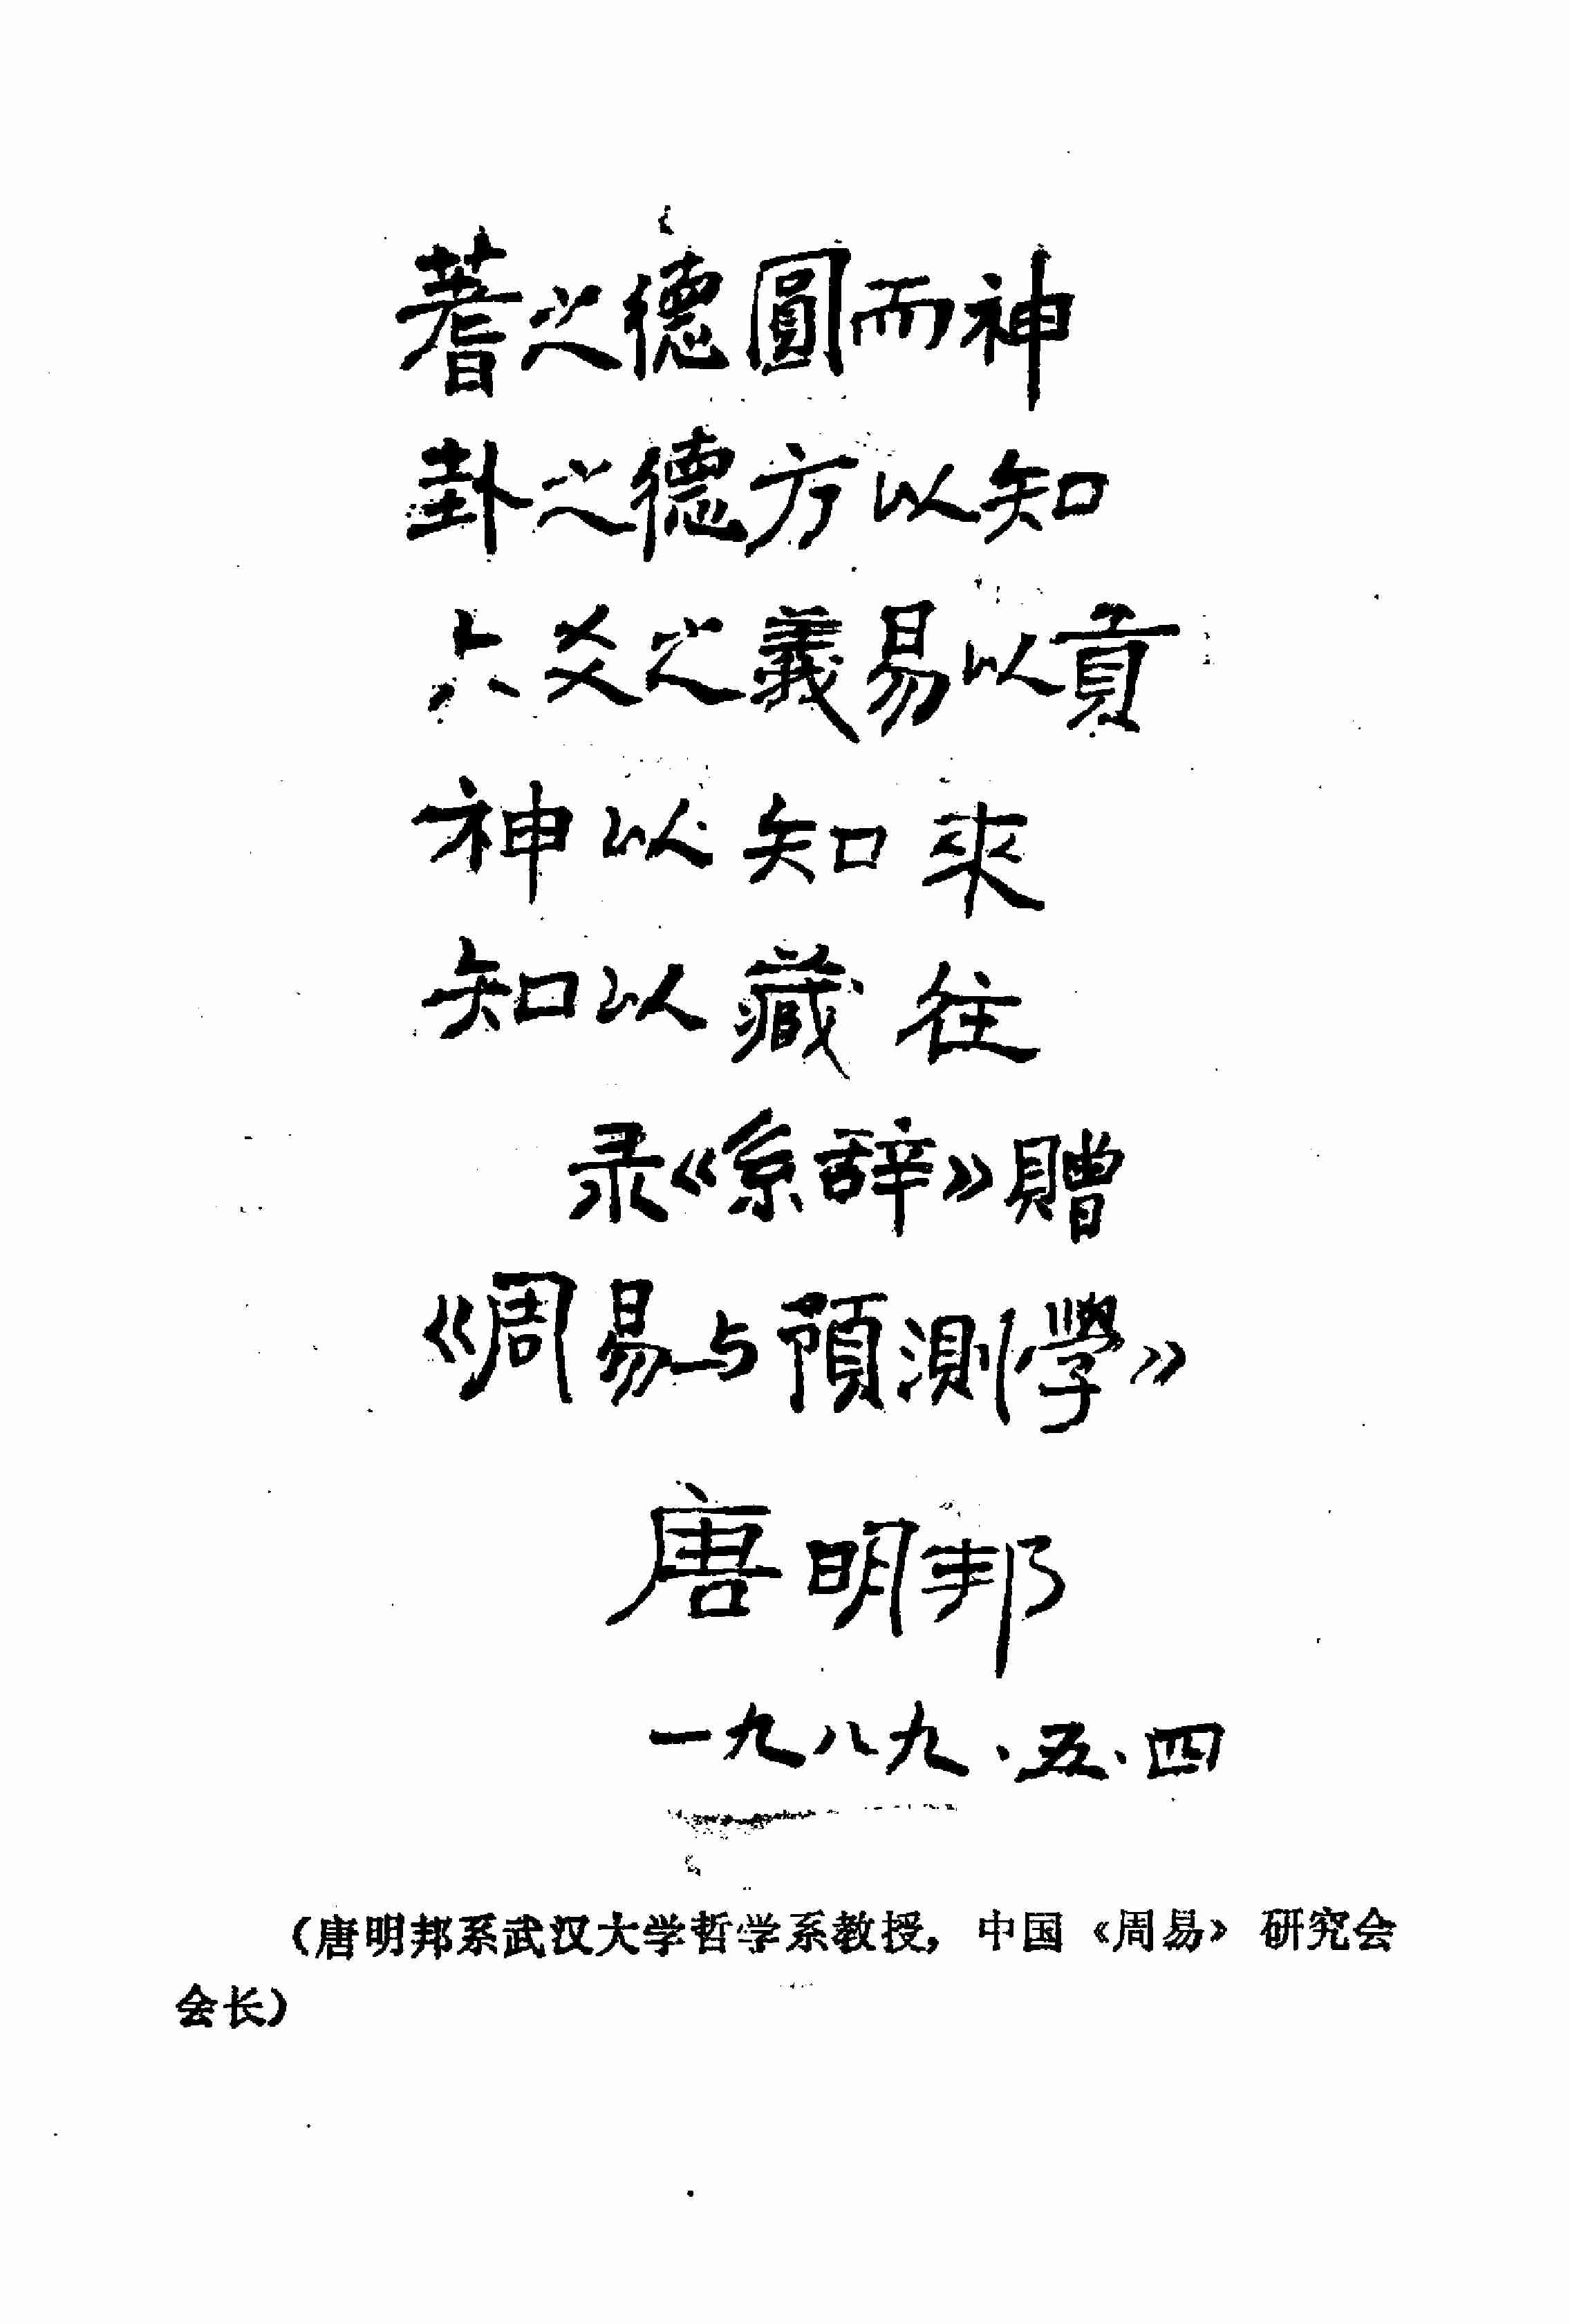 蓍之德圓而神
卦之德方以知
六爻之義易以貢
神以知來
知以藏往
录《系辞》贈
《周易与預測學》
唐明邦
一九八九、五、四
（唐明邦系武汉大学哲学系教授，中国《周易》研究会
会长）